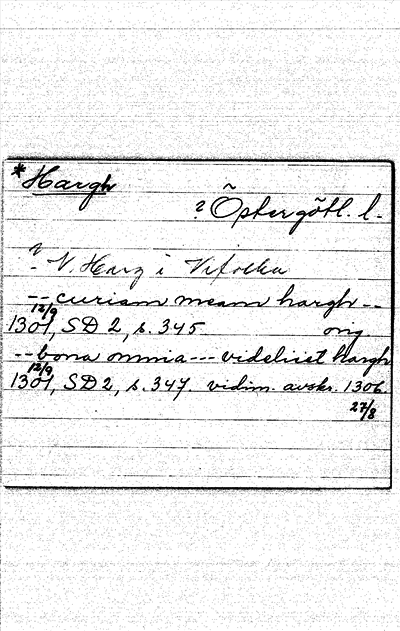 *Hargh
? Östergötl. l.
? N. Harg i Vifolka
-- curiam meam hargh --
12/9
1301, SD 2, s. 345 orig.
-- bona omnia --- videlicet hargh
12/9
1301, SD 2, s. 347. vidim. avskr. 1306
27/8